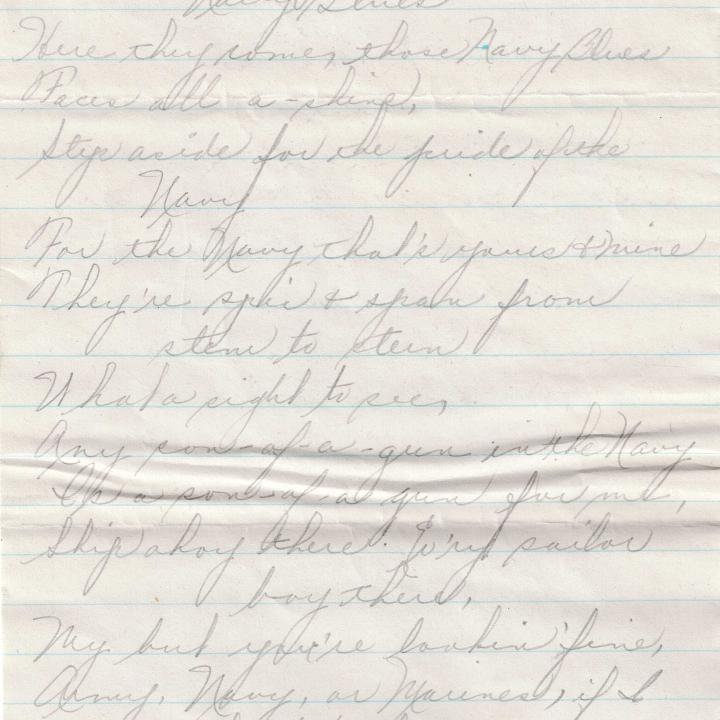 Navy Blues
Here they come, those Navy Blues
Faces all a-shine,
Step aside for the pride of the
Navy
For the Navy that's yours & mine
They're spic & span from
stem to stern
What a sight to see,
Any son-of-a-gun in the Navy
Is a son-of-a gun for me,
Ship ahoy there. Ev'ry sailor
boy there,
My but you're lookin' fine,
Army, Navy, or Marines, if I